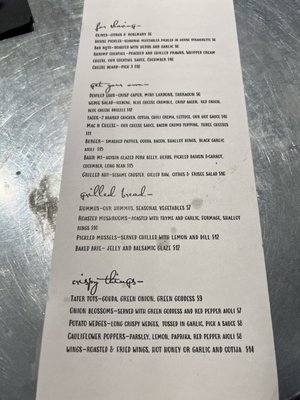 for sharing-
Olives-citrus & rosemary $6
House pickles-seasonal vegetables pickled in house vinaigrette $6
Bar nuts-roasted with herbs and garlic $6
Shrimp cocktail -poached and grilled prawns, whipped cream
cheese, our cocktail sauce, cucumber $16
Cheese board-pick 3 $18
get your own-
Deviled eggs-crisp caper, mini candons, tarragon $6
Wedge salad-iceberg, blue cheese crumble, crisp bacon, red onion,
blue cheese drizzle $12
Tacos-2 roasted chicken, cotija, chili crema, lettuce, our hot sauce $16
Mac & cheese-our cheese sauce, bacon crumb topping, three cheeses
$11
Burger- smashed patties, gouda, bacon, shallot rings, black garlic
aioli $15
Banh mi-hoisin glazed pork belly, herbs, pickled daikon &carrot,
cucumber, long bean $15
Grilled ahi-sesame crusted, grilled raw, citrus & cress salad $16
grilled bread-
Hummus-our hummus, seasonal vegetables $7
Roasted mushrooms-roasted with thyme and garlic, fromage, shallot
rings $10
Pickled mussels-served chilled with lemon and dill $12
Baked brie- jelly and balsamic glaze $12
crispy things-
Tater tots-gouda, green onion, green goddess $9
Onion blossoms-served with green goddess and red pepper aioli $7
Potato wedges-long crispy wedges, tossed in garlic, pick a sauce $8
Cauliflower poppers-parsley, lemon, paprika, red pepper aioli $8
Wings-roasted & fried wings, hot honey or garlic and cotija $14